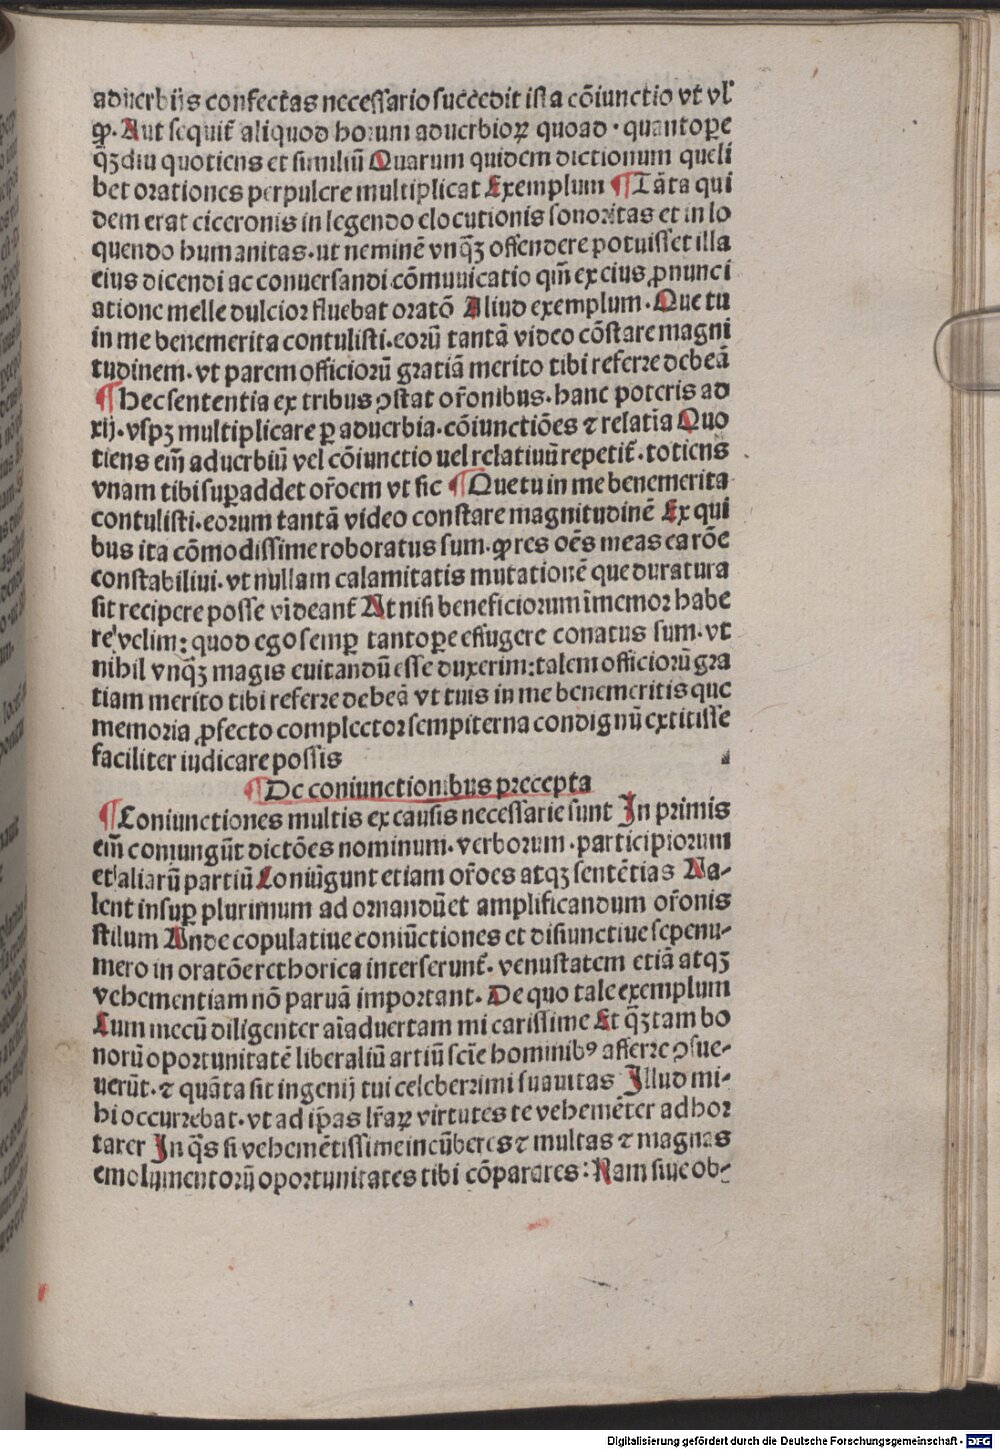 aduerbijs confectas necessario succedit ista cōiunctio vt vl'
ꝙ. Aut sequit̄ aliquod horum aduerbioꝝ quoad · quantoꝑe
q̄ꝫdiu quotiens et similiū Quarum quidem dictionum queli
bet orationes perpulcre multiplicat Exemplum ¶ Tāta qui
dem erat ciceronis in legendo elocutionis sonoritas et in lo
quendo humanitas. ut neminē vnq̄ꝫ offendere potuisset illa
eius dicendi ac conuersandi cōmunicatio qm̄ ex eius ꝓnunci
atione melle dulcior fluebat oratō Aliud exemplum. Que tu
in me benemerita contulisti. eorū tantā video cōstare magni
tudinem. vt parem officiorū gratiā merito tibi referre debeā
¶ Hec sententia ex tribus ꝯstat or̄onibus. hanc poteris ad
xij. vsqꝫ multiplicare ꝑ aduerbia. cōiunctiōes ⁊ relatīa Quo
tiens eīm aduerbiū vel cōiunctio uel relatiuū repetit̄. totiens
vnam tibi suꝑaddet or̄oem vt sic ¶ Que tu in me benemerita
contulisti. eorum tantā video constare magnitudinē Ex qui
bus ita cōmodissime roboratus sum. ꝙ res oēs meas ea rōe
constabiliui. vt nullam calamitatis mutationē que duratura
sit recipere posse videant̄ At nisi beneficiorum īmemor habe
re' velim: quod ego semꝑ tantoꝑe effugere conatus sum. vt
nihil vnq̄ꝫ magis euitandū esse duxerim: talem officiorū gra
tiam merito tibi referre debeā vt tuis in me benemeritis que
memoria ꝓfecto complector sempiterna condignū extitisse
faciliter iudicare possis
¶ De coniunctionibus precepta
¶ Coniunctiones multis ex causis necessarie sunt In primis
eīm coniungūt dictōes nominum. verborum. participiorum
et aliarū partiū Coniūgunt etiam or̄oes atqꝫ sentētias Va-
lent insuꝑ plurimum ad ornandū et amplificandum or̄onis
stilum Vnde copulatiue coniūctiones et disiunctiue sepenu-
mero in oratōe rethorica interserunt̄. venustatem etiā atqꝫ
vehementiam nō paruā important. De quo tale exemplum
Cum mecū diligenter aīaduertam mi carissime Et q̄ꝫ tam bo
norū oportunitatē liberaliū artiū scīe hominibꝰ afferre ꝯsue-
uerūt. ⁊ quāta sit ingenij tui celeberrimi suauitas Illud mi-
hi occurrebat. vt ad ip̄as lr̄aꝝ virtutes te vehemēter adhor
tarer In q̄s si vehemētissime incūberes ⁊ multas ⁊ magnas
emolumentorū oportunitates tibi cōparares: Nam siue ob-
Digitalisierung gefördert durch die Deutsche Forschungsgemeinschaft - DFG